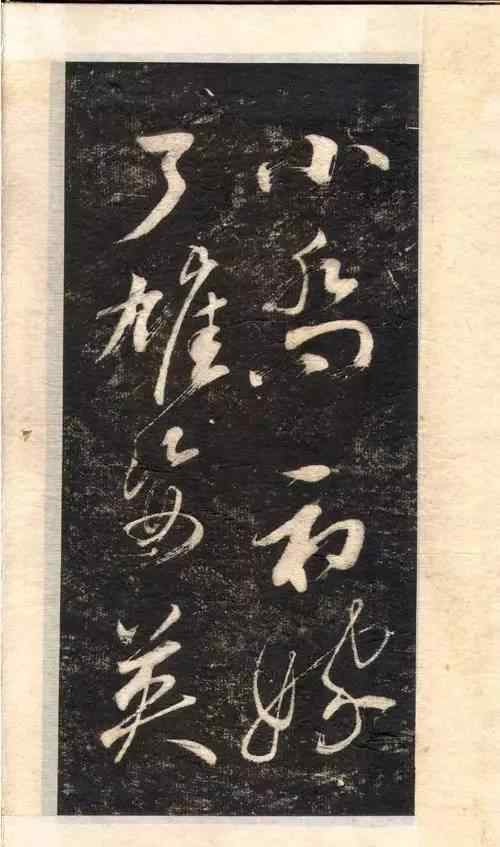 小喬初嫁
了雄姿英